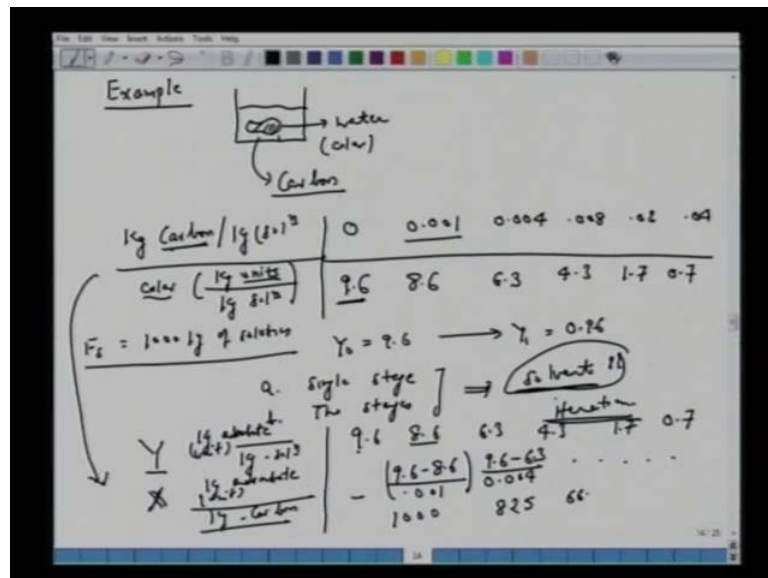 File Edit View Insert Actions Tools Help
Example
water
(color)
Carbon
Kg Carbon / kg (sol)ⁿ 0 0.001 0.004 .008 .02 .04
Color (kg units / kg solⁿ) 9.6 8.6 6.3 4.3 1.7 0.7
Fs = 1000 kg of solution Y₀ = 9.6 → Y₁ = 0.96
a. Single stage
b. Two stages ⇒ Solvents
iteration
Y (unit) kg adsorbate / kg - solⁿ 9.6 8.6 6.3 4.3 1.7 0.7
X (unit) kg adsorbate / kg - carbon - (9.6-8.6 / .001) 9.6-6.3 / 0.004 . . . . .
1000 825 66